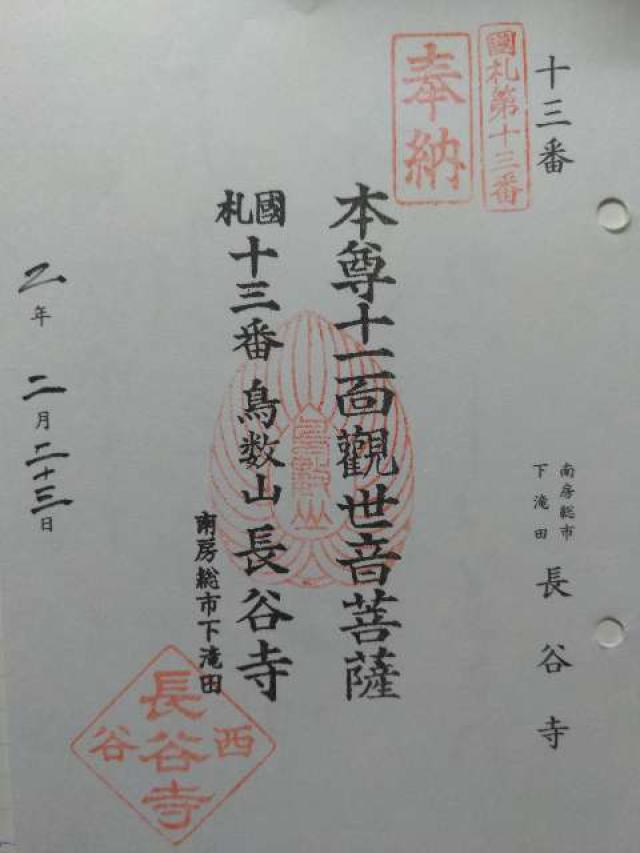 十三番
國札第十三番
奉納
南房総市
下滝田
長谷寺
本尊十一面觀世音菩薩
國札
十三番 鳥数山 長谷寺
南房総市下滝田
鳥数山
西谷
長谷寺
乙年 二月二十三日